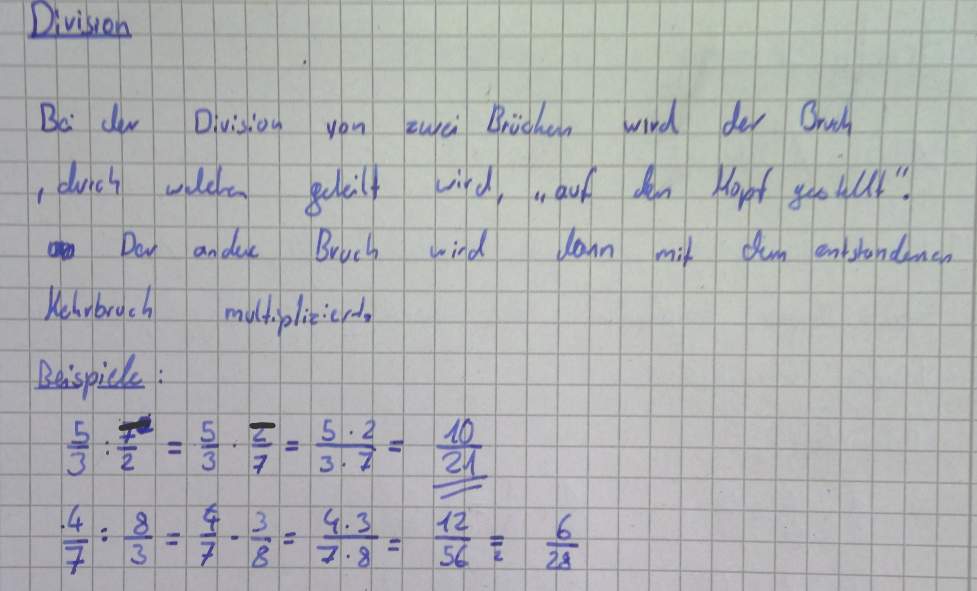 Division
Bei der Division von zwei Brüchen wird der Bruch
, durch welchen geteilt wird, „auf den Kopf gestellt".
Der andere Bruch wird dann mit dem entstandenen
Kehrbruch multipliziert.
Beispiele:
5/3 : 7/2 = 5/3 · 2/7 = 5·2/3·7 = 10/21
4/7 : 8/3 = 4/7 · 3/8 = 4·3/7·8 = 12/56 = 6/28